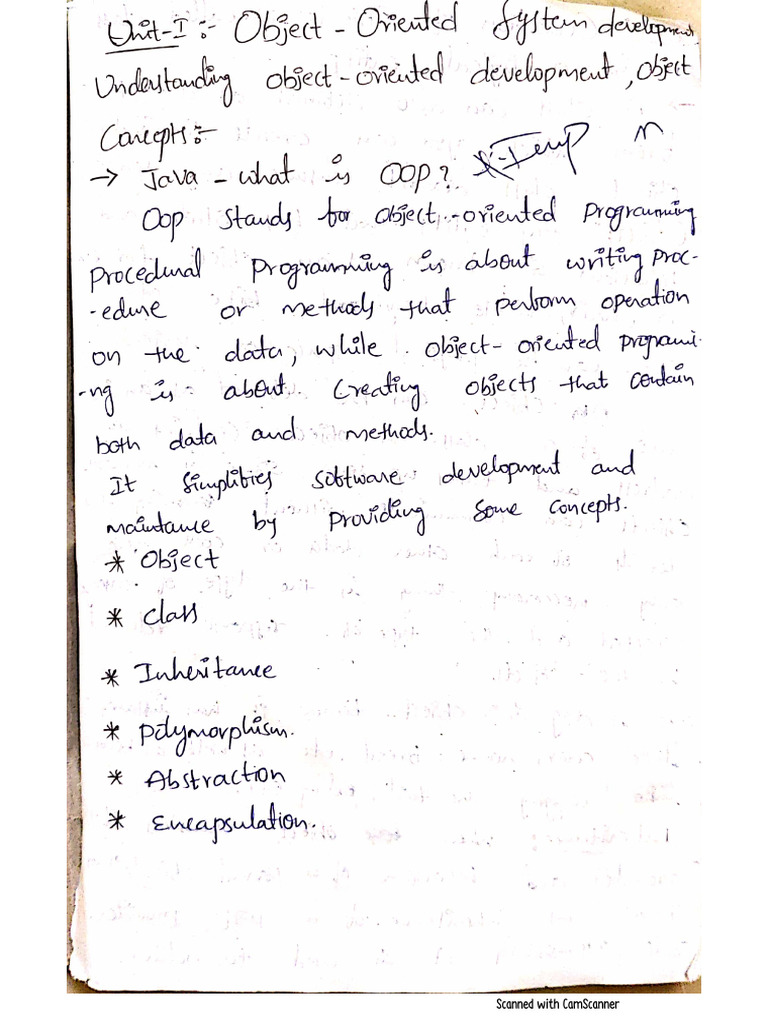 Unit-I :- Object - Oriented System development
Understanding object-oriented development, Object
Concepts:-
→ Java - what is OOP? *-Imp
OOP stands for object-oriented programming
Procedural programming is about writing proc-
-edure or methods that perform operation
on the data, while object-oriented programi-
-ng is about creating objects that contain
both data and methods.
It simplifies software development and
maintance by providing some concepts.
* Object
* class
* Inheritance
* polymorphism.
* Abstraction
* Encapsulation.
Scanned with CamScanner